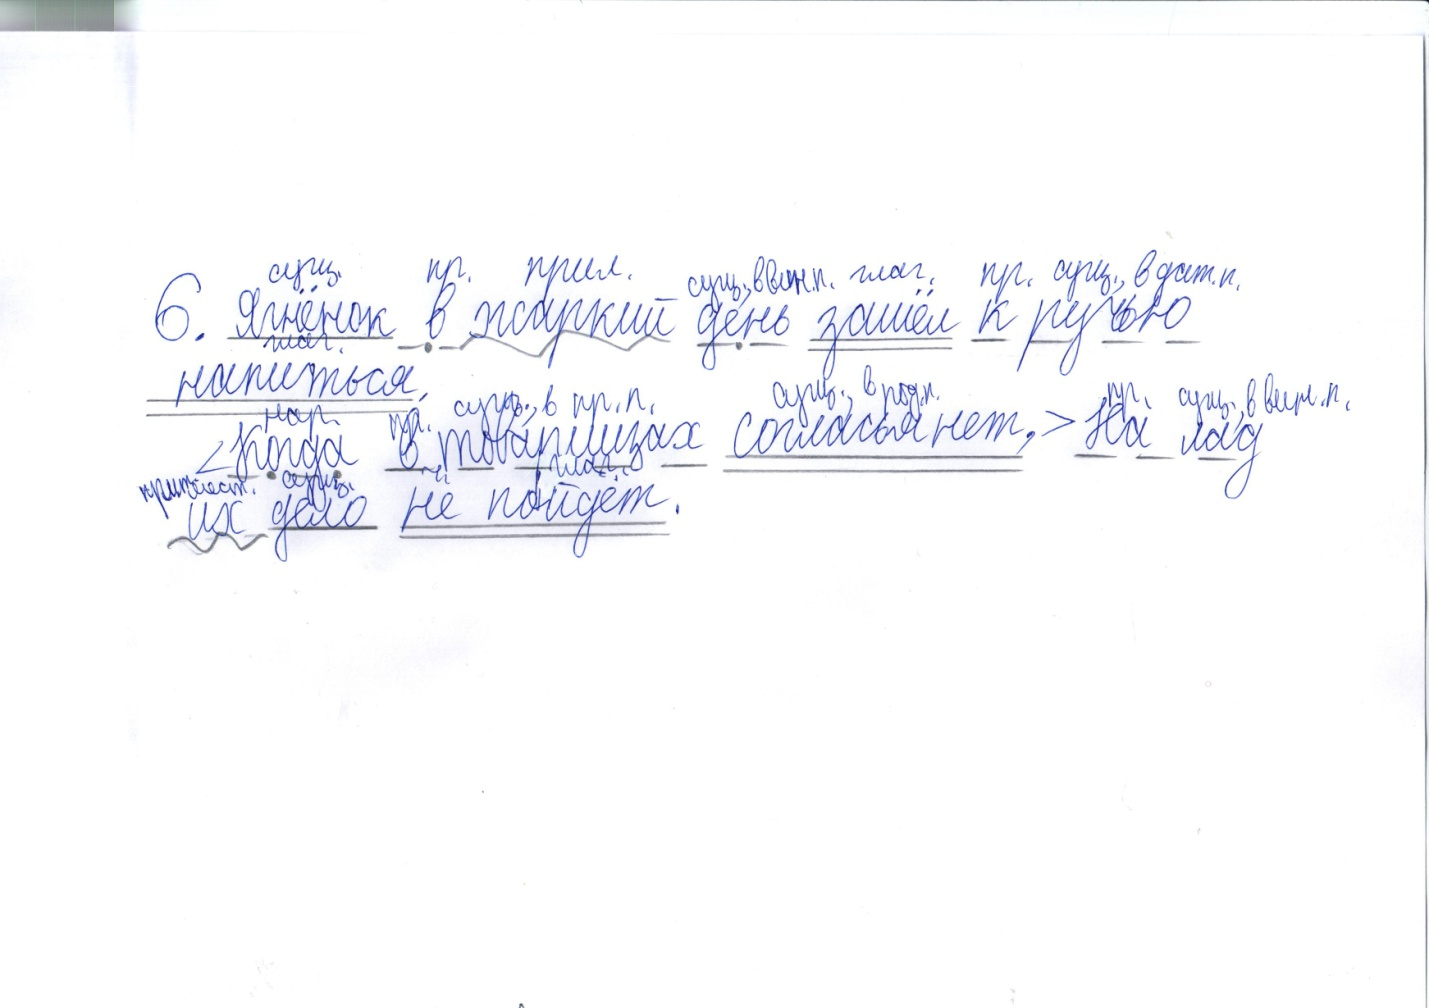 сущ. пр. прил. сущ., в вин.п. глаг. пр. сущ., в дат.п.
6. Ягнёнок в жаркий день зашёл к ручью
глаг.
напиться.
нар. пр. сущ., в пр.п. сущ., в род.п. пр. сущ., в вин.п.
<Когда в товарищах согласья нет,> На лад
притяжест. сущ. глаг.
их дело не пойдёт.